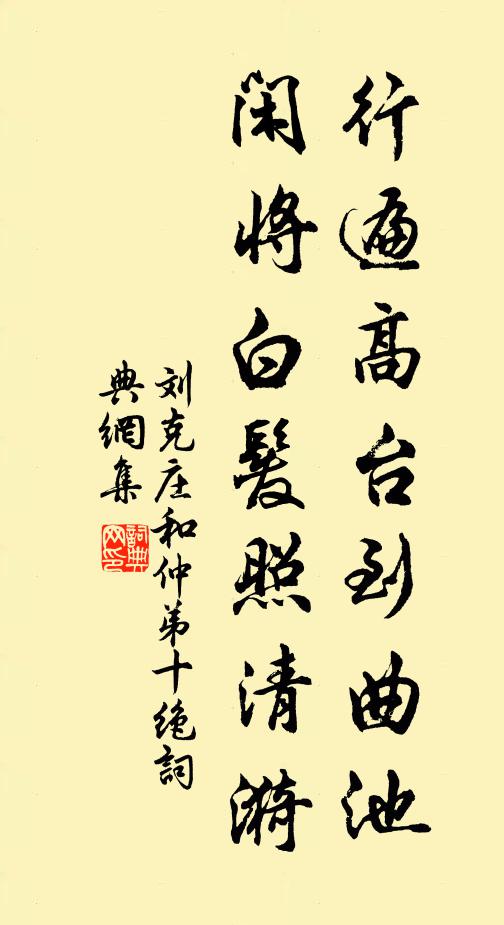 行遍高台到曲池
閑將白髮照清漪
刘克庄和仲弟十绝詞
典網集
詞典网印